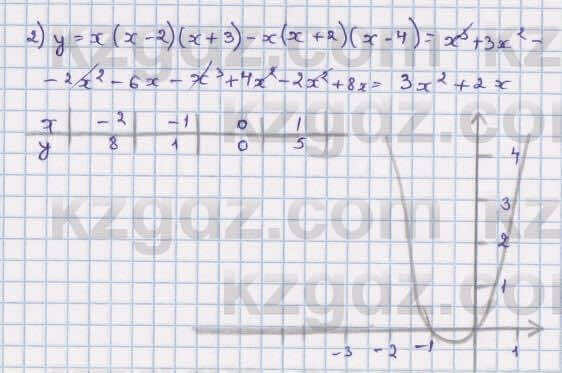 2) y = x(x-2)(x+3) - x(x+2)(x-4) = x³ + 3x² -
- 2x² - 6x - x³ + 4x² - 2x² + 8x = 3x² + 2x
x -2 -1 0 1
y 8 1 0 5
4
3
2
1
-3 -2 -1 1
kzgdz.com kzgdz.com
kzgdz.com kzgdz.com
kzgdz.com